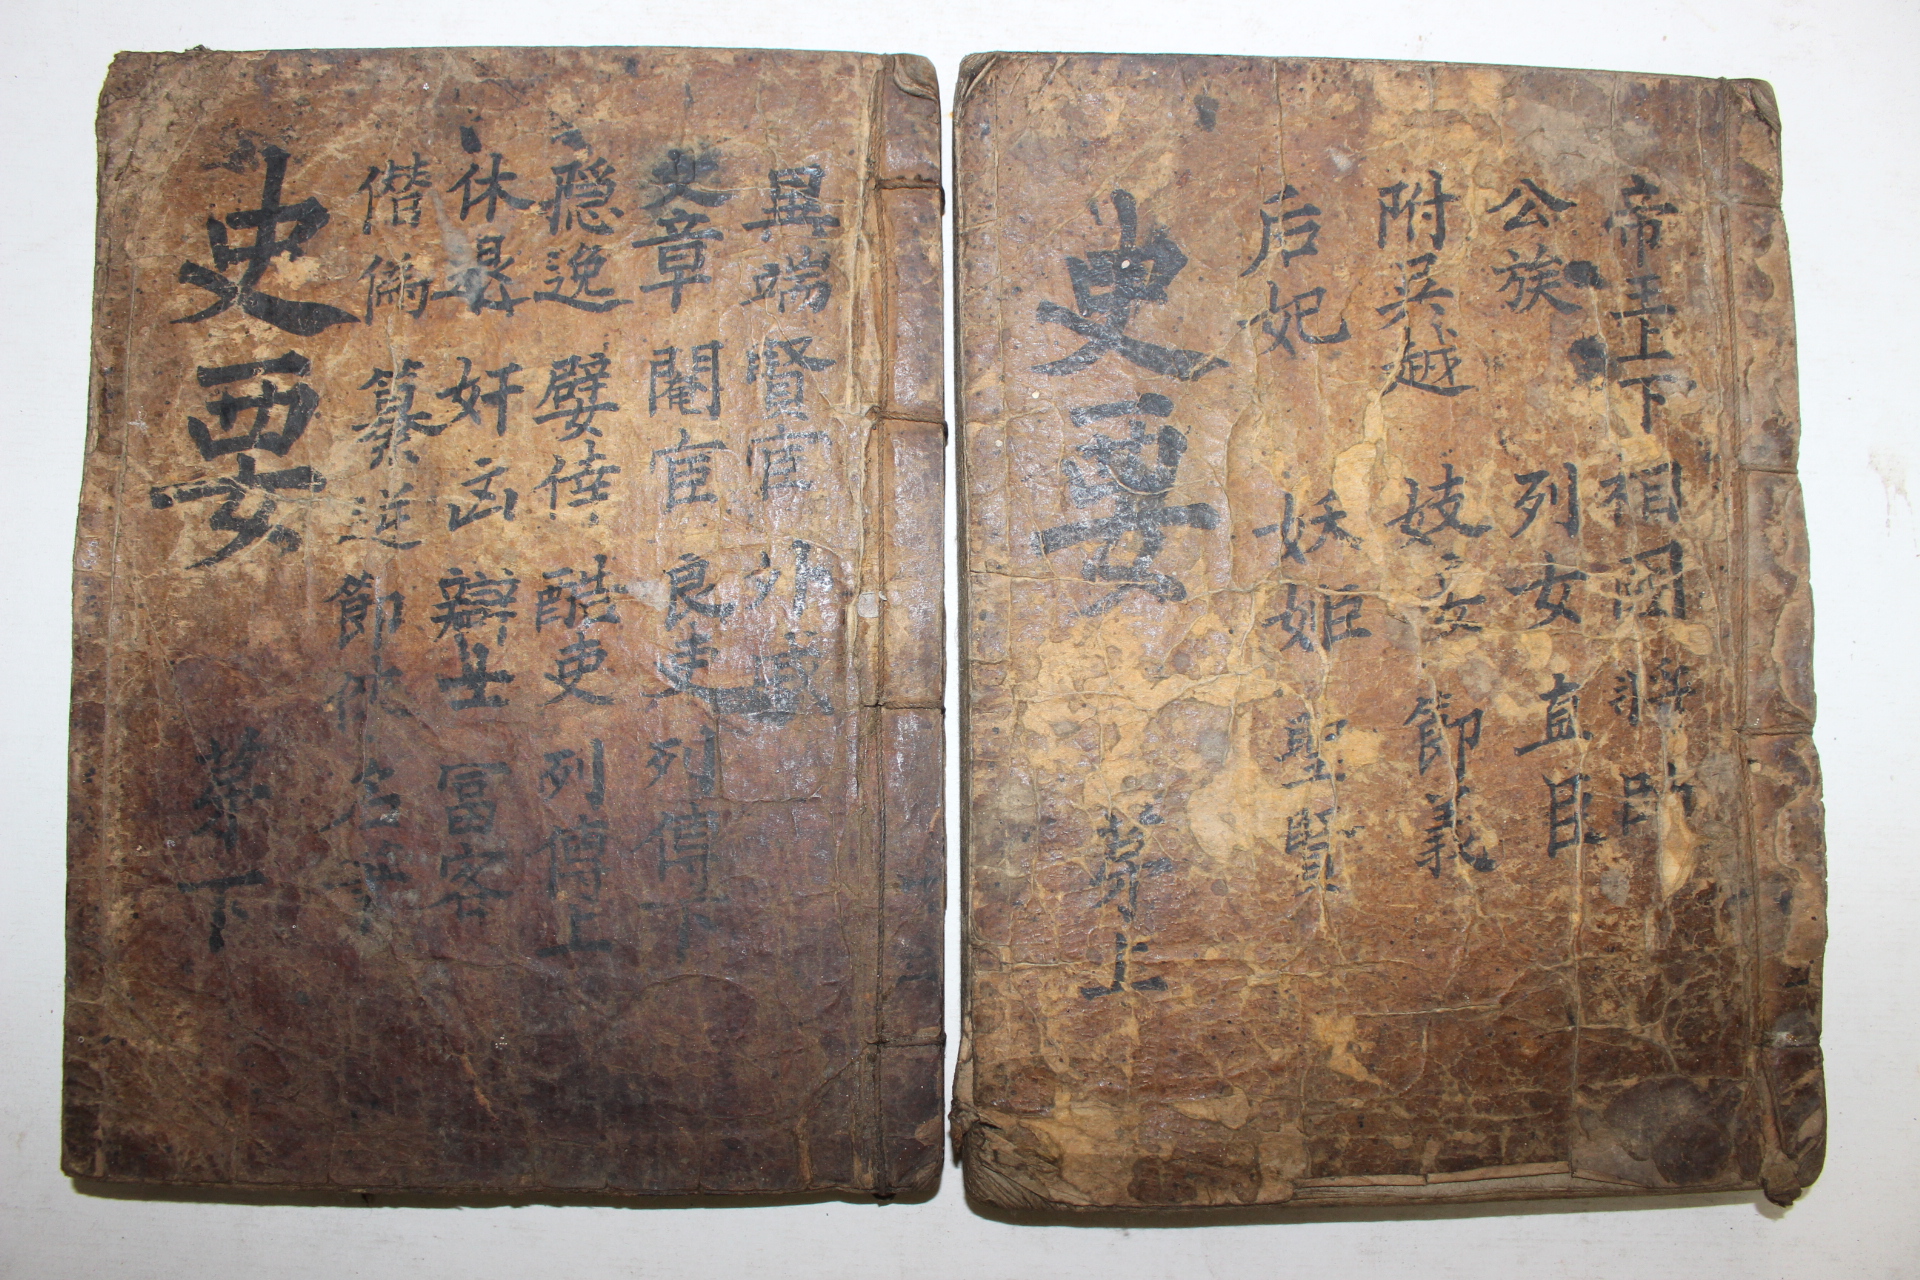 帝王上下 相國 將帥
公族 列女 直臣
附吳越 妓女 節義
后妃 妖姬 聖賢
史要 亨上
異端 賢宦 外戚
文章 閹宦 良吏 列傳下
隱逸 嬖倖 酷吏 列傳上
休退 奸凶 辯士 富客
僭僞 篡逆 節俠 名
史要 下